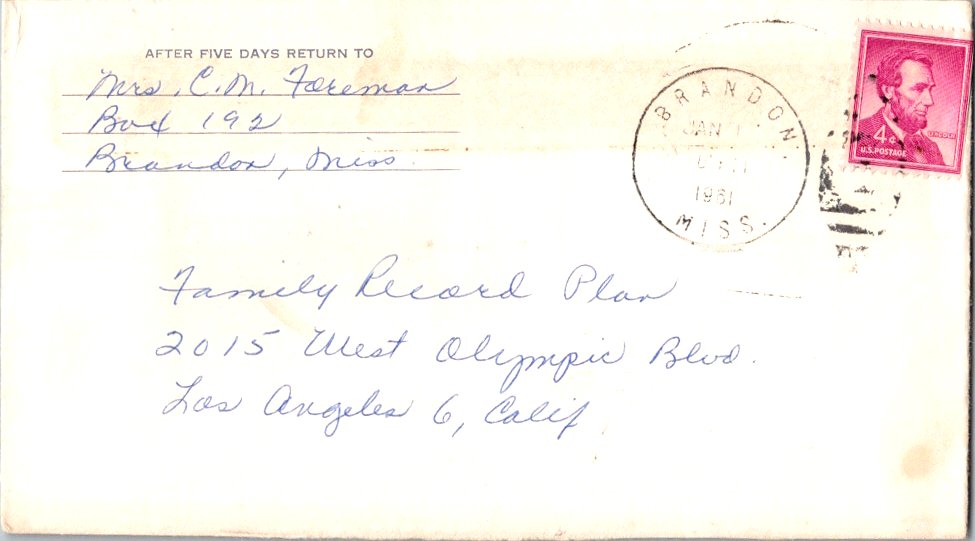 AFTER FIVE DAYS RETURN TO
Mrs. C. M. Foreman
Box 192
Brandon, Miss.
BRANDON
JAN
1961
MISS.
4¢
LINCOLN
U.S. POSTAGE
Family Record Plan
2015 West Olympic Blvd.
Los Angeles 6, Calif